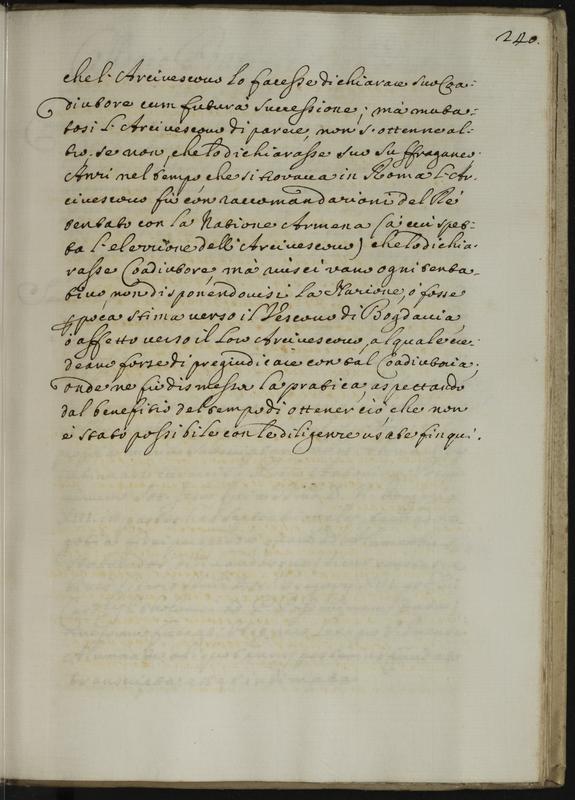 240.
che l'Arcivescovo lo facesse dichiarare suo Coa-
diutore cum futura successione; mà muta-
tosi l'Arcivescovo di parere, non s'ottenne al-
tro, se non, che lo dichiarasse suo Suffraganeo.
Anzi nel tempo che si trovava in Roma l'Ar-
civescovo fù con raccomandazioni del Rè
tentato con la Natione Armena (à cui spet-
ta l'elezzione dell'Arcivescovo) che lo dichia-
rasse Coadiutore, mà riuscì vano ogni tenta-
tivo, non disponendovisi la Nazione, ò forse
p poca stima verso il Vescovo di Bogdania,
ò affetto verso il Loro Arcivescovo, al quale cre-
deano forse di pregiudicare con tal Coadiutoria;
onde ne fù dismessa la pratica, aspettando
dal benefitio del tempo di ottener ciò, che non
è stato possibile con le diligenze usate fin qui.